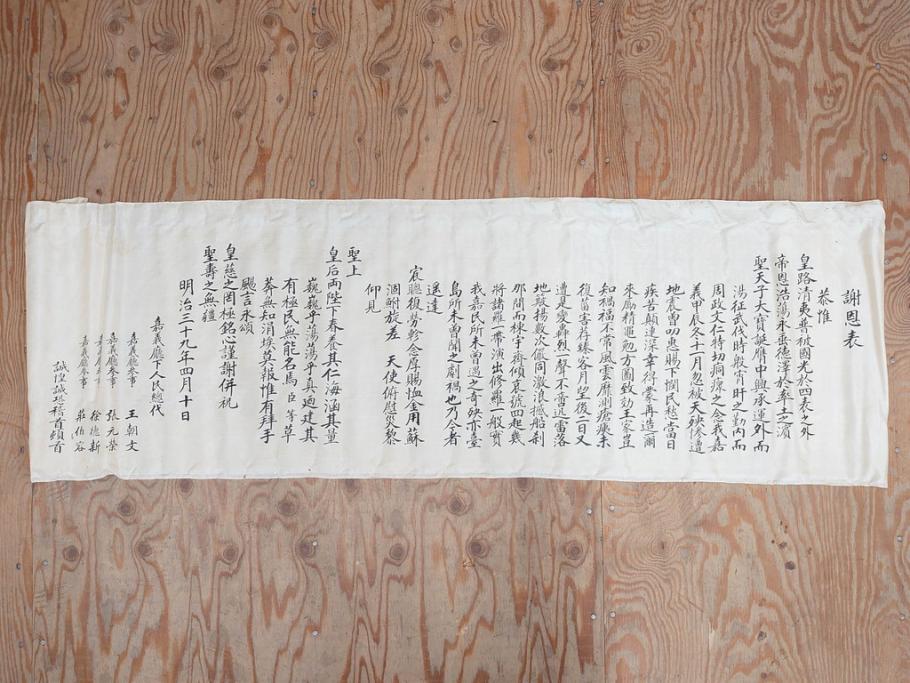 謝恩表
恭惟
皇路清夷普被國光於四表之外
帝恩浩蕩永垂德澤於率土之濱
聖天子大寶誕膺中興承運外而
湯征武伐時殷宵旰之勤內而
周政文仁特切痌瘝之念我嘉
義甲辰冬十一月忽被天殃慘遭
地震曾叨惠賜下憫民愁當日
疾苦顛連深幸得蒙再造爾
來勵精黽勉方圖效力王家豈
知禍福不常風雲靡測瘡痍未
復菑害荐臻客月望後二日又
遭是變轟烈一聲不啻迅雷落
地駭揚數次儼同激浪撼船剎
那間而棟宇齊傾哀號四起幾
將諸羅一帶演出修羅一般實
我嘉民所未曾遇之奇殃亦臺
島所未曾聞之劇禍也乃今者
遙達
宸聰復勞軫念厚賜恤金用蘇
涸鮒旋差 天使俯慰災黎
仰見
聖上
皇后両陛下春養其仁海涵其量
巍巍乎蕩蕩乎真過建其
有極民無能名焉 臣 等草
莽無知涓埃莫報惟有拜手
颺言永頌
皇慈之罔極銘心謹謝併祝
聖壽之無疆
明治三十九年四月十日
嘉義廳下人民總代
嘉義廳參事 王朝文
嘉義廳參事 張元榮
徐德新
嘉義廳參事 莊伯容
誠惶誠恐稽首頓首